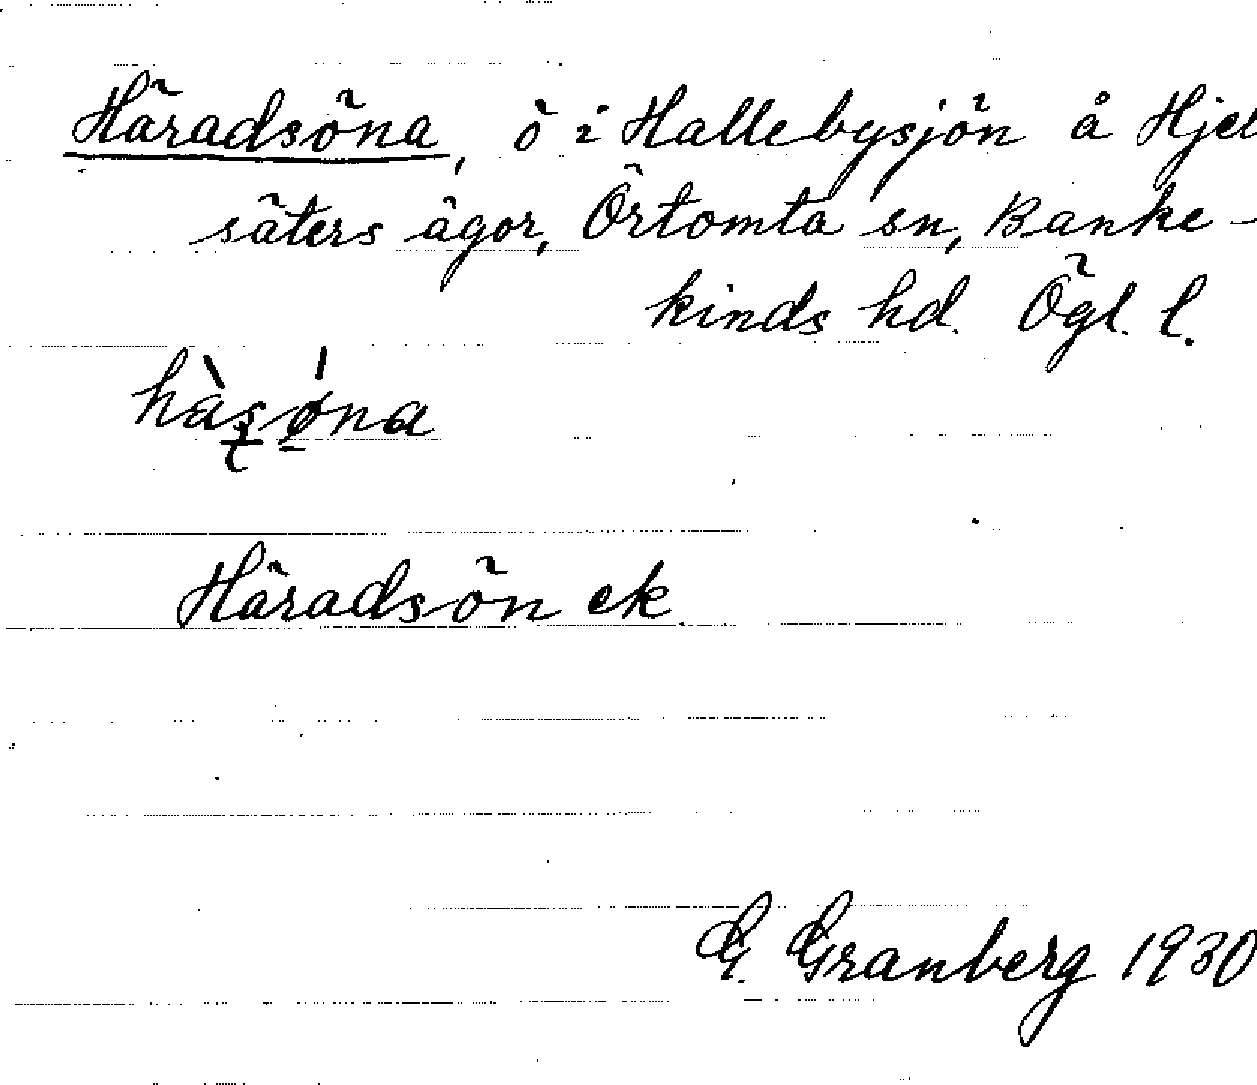 Häradsöna, ö i Hallebysjön å Hjel
säters ägor, Örtomta sn, Banke-
kinds hd. Ögl. l.
Häradsön ek.
G. Granberg 1930